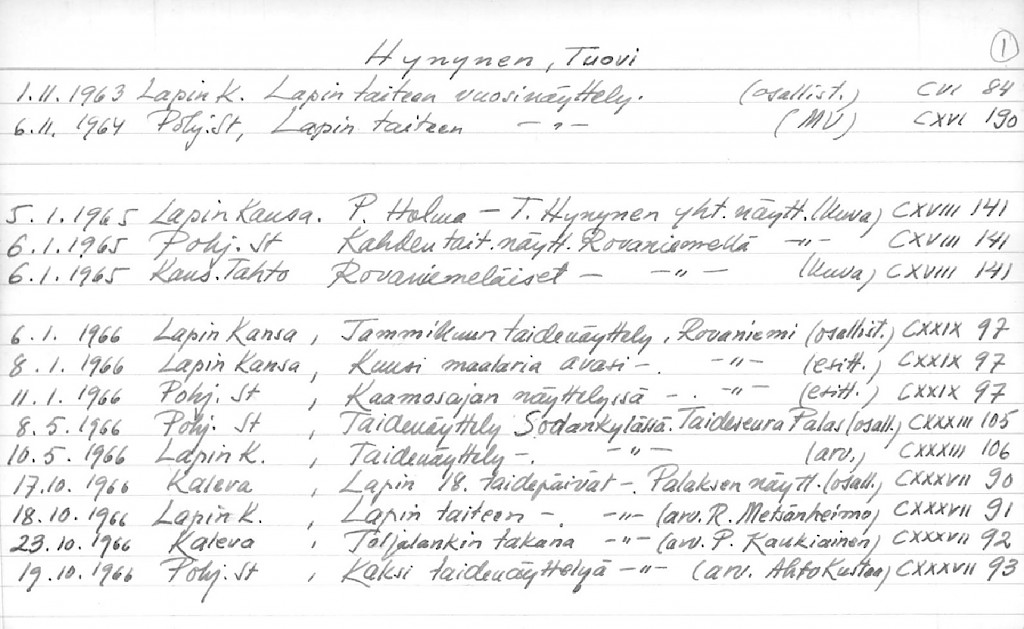 Hynynen, Tuovi 1
1.11.1963 Lapin K. Lapin taiteen vuosinäyttely. (osallist.) CVI 84
6.11. 1964 Pohj. St, Lapin taiteen — „ — (MV) CXVI 190
5.1.1965 Lapin Kansa. P. Holma — T. Hynynen yht. näytt. (kuva) CXVIII 141
6.1.1965 Pohj. St Kahden tait. näytt. Rovaniemellä —„— CXVIII 141
6.1.1965 Kans. Tahto Rovaniemeläiset — —„— (kuva) CXVIII 141
6.1. 1966 Lapin Kansa, Tammikuun taidenäyttely, Rovaniemi (osallist.) CXXIX 97
8.1. 1966 Lapin Kansa, Kuusi maalaria avasi —. —„— (esitt.) CXXIX 97
11.1.1966 Pohj. St, Kaamosajan näyttelyssä —. —„— (esitt.) CXXIX 97
8.5.1966 Pohj. St, Taidenäyttely Sodankylässä. Taideseura Palas (osall.) CXXXIII 105
10.5.1966 Lapin K., Taidenäyttely —. —„— (arv.) CXXXIII 106
17.10.1966 Kaleva, Lapin 18. taidepäivät —. Palaksen näytt. (osall.) CXXXVII 90
18.10.1966 Lapin K., Lapin taiteen —. —„— (arv. R. Metsänheimo) CXXXVII 91
23.10.1966 Kaleva, takana —„— (arv. P. Kaukiainen) CXXXVII 92
19.10.1966 Pohj. St, Kaksi taidenäyttelyä —„— (arv. Ahto) CXXXVII 93